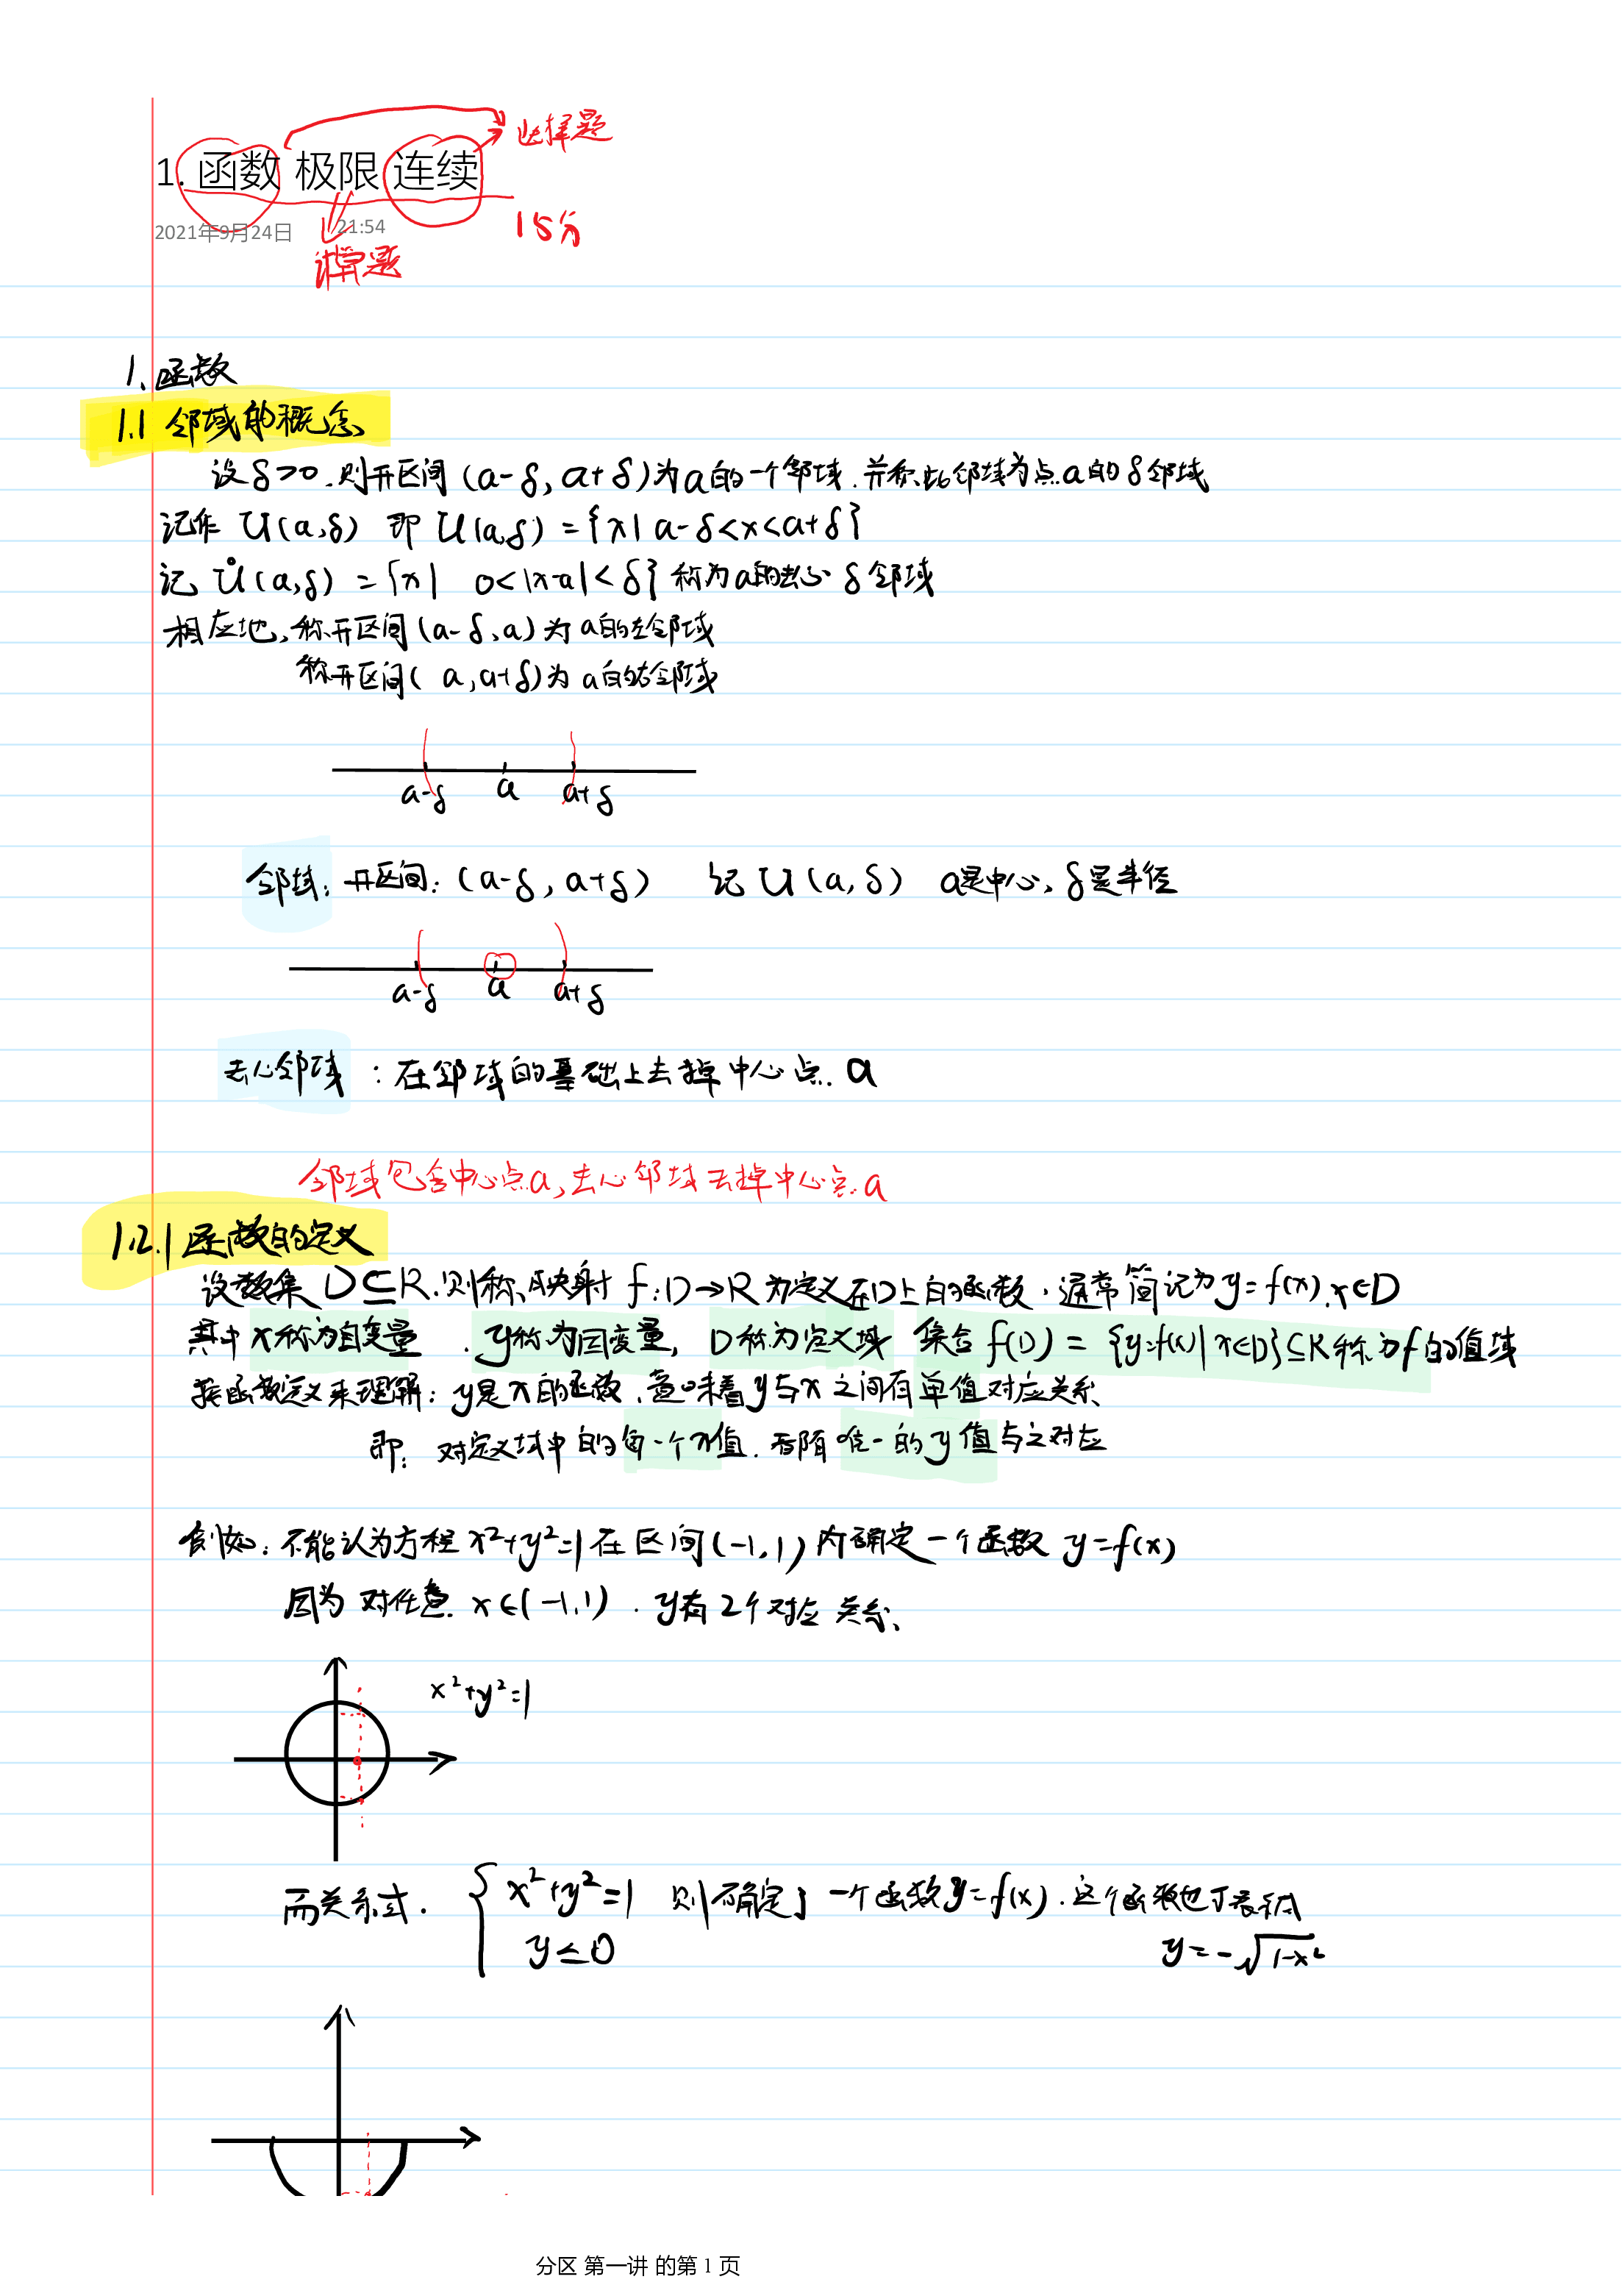 选择题
1. 函数 极限 连续
15分
2021年9月24日 21:54
计算题
1、函数
1.1 邻域的概念
设δ>0.则开区间(a-δ,a+δ)为a的一个邻域.并称此邻域为点a的δ邻域
记作 U(a,δ) 即 U(a,δ)={x| a-δ<x<a+δ}
记 Ů(a,δ)={x| 0<|x-a|<δ}称为a的去心δ邻域
相应地,称开区间(a-δ,a)为a的左邻域
称开区间(a,a+δ)为a的右邻域
a-δ a a+δ
邻域:开区间:(a-δ,a+δ) 记 U(a,δ) a是中心、δ是半径
a-δ a a+δ
去心邻域:在邻域的基础上去掉中心点.a
邻域包含中心点a,去心邻域去掉中心点a
1.2.1函数的定义
设数集D⊆R.则称映射f:D→R为定义在D上的函数,通常简记为y=f(x).x∈D
其中x称为自变量.y称为因变量,D称为定义域 集合f(D)={y=f(x)|x∈D}⊆R称为f的值域
按函数定义来理解:y是x的函数.意味着y与x之间有单值对应关系
即:对定义域中的每一个x值.都有唯一的y值与之对应
例如:不能认为方程x²+y²=1在区间(-1,1)内确定一个函数y=f(x)
因为对任意x∈(-1,1).y有2个对应关系、
x²+y²=1
而关系式. { x²+y²=1 则确定了一个函数y=f(x).这个函数也可表示成
y≤0 y=-√1-x²
分区 第一讲 的第 1 页